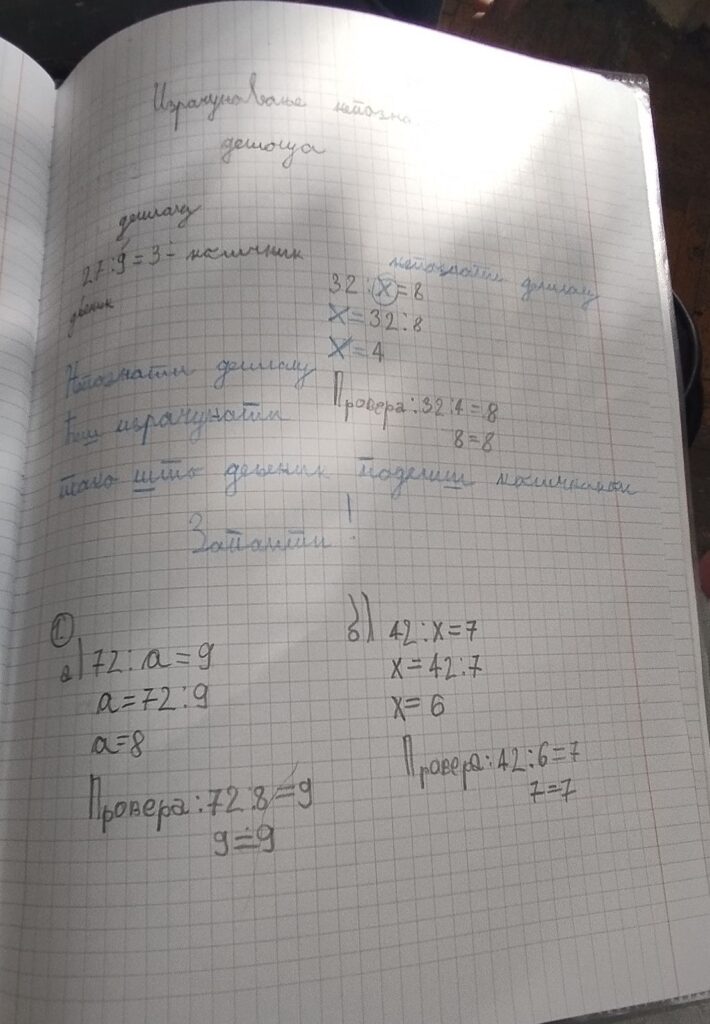 Израчунавање непозна
делиоца
делилац
27:9=3 - количник
дељеник
непознати делилац
32:x=8
x=32:8
x=4
Провера:32:4=8
8=8
Непознати делилац
ћеш израчунати
тако што дељеник поделиш количником
Запамти!
1.
а) 72:a=9
a=72:9
a=8
Провера:72:8=9
9=9
б) 42:x=7
x=42:7
x=6
Провера:42:6=7
7=7